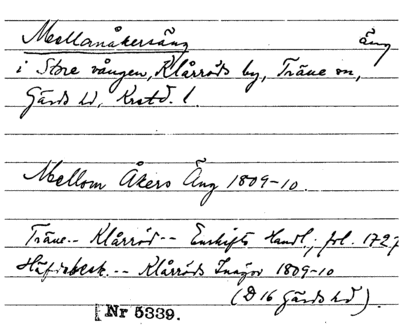 Mellanåkersäng äng
i Store vången, Klårröds by, Träne sn,
Gärds hd, Krstd. l.
Mellom Åkers Äng 1809-10.
Träne-- Klårröd-- Enskifts Handl; fol. 1727
Häfdebesk.-- Klårröds Inägor 1809-10
(D 16 Gärds hd).
Nr 5339.